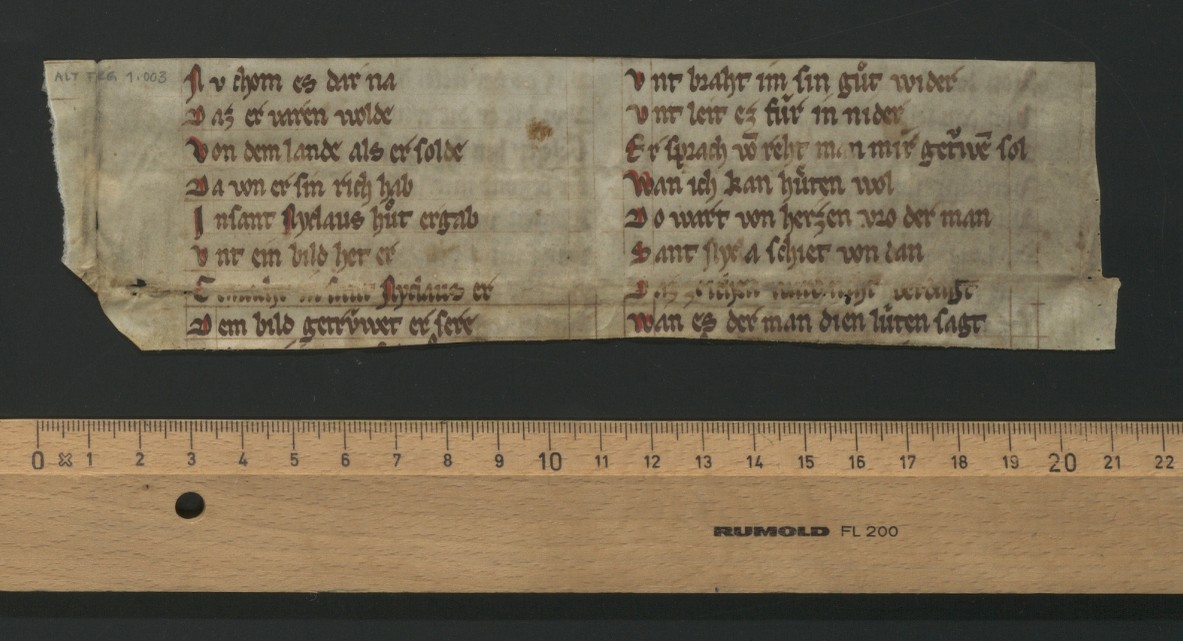 ALT FRG 1.003
Nv chom es dar na
Daz er varen wolde
Von dem lande als er solde
Da von er sin rich hab
In sant Nyclaus hůt ergab
Vnt ein bild het er
Nyclaus er
Dem bild getrv̊wet er sere
Vnt braht im sin gůt wider
Vnt leit ez fůr in nider
Er sprach vō reht man mir getrv̊wē sol
Wan ich kan hůten wol
Do wart von herzen vro der man
Sant Nycla schiet von dan
Daz zeichen
Wan es der man dien lůten sagt
0 1 2 3 4 5 6 7 8 9 10 11 12 13 14 15 16 17 18 19 20 21 22
RUMOLD FL 200